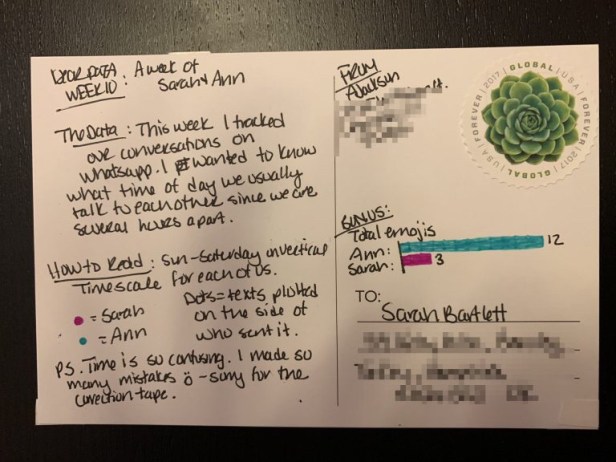 DEAR DATA
WEEK 10 : A week of
Sarah + Ann
The Data : This week I tracked
our conversations on
whatsapp. I wanted to know
what time of day we usually
talk to each other since we are
several hours apart.
How to Read : Sun-Saturday on vertical
Timescale for each of us.
= Sarah
= Ann
Dots = texts plotted
on the side of
who sent it.
P.S. Time is so confusing. I made so
many mistakes ö - sorry for the
correction tape.
FROM
AJackson
GLOBAL | USA | FOREVER | 2017 | GLOBAL | USA | FOREVER | 2017
BONUS:
Total emojis
Ann: 12
Sarah: 3
TO:
Sarah Bartlett